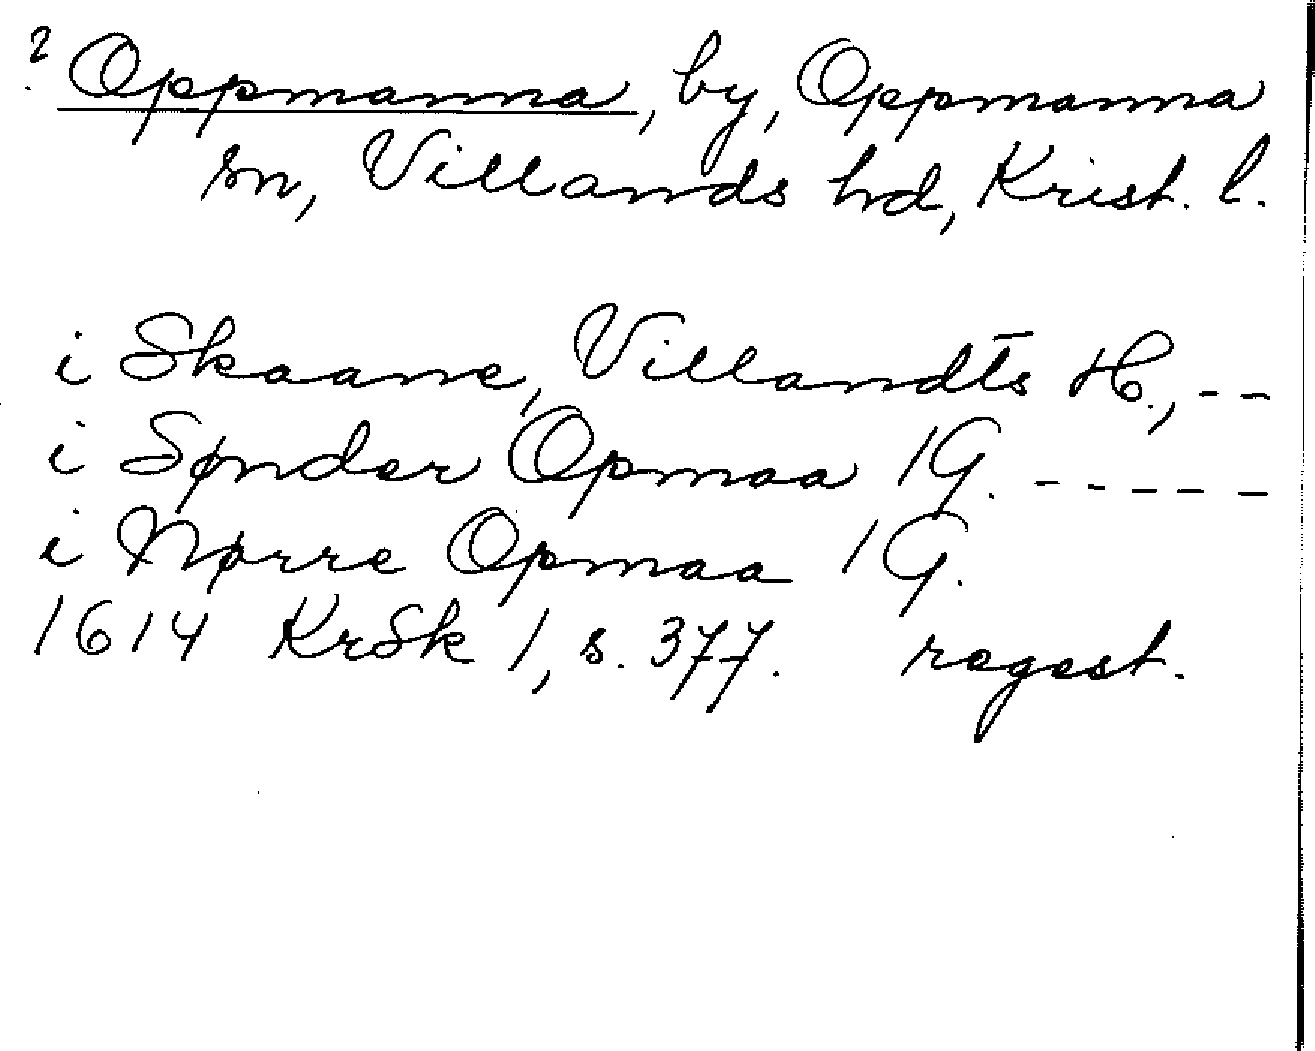 ? Oppmanna, by, Oppmanna
sn, Villands hd, Krist. l.
i Skaane, Villandts H., --
i Sønder Opmaa 1 G. -----
i Nørre Opmaa 1 G.
1614 KrSk 1, s. 377. regest.